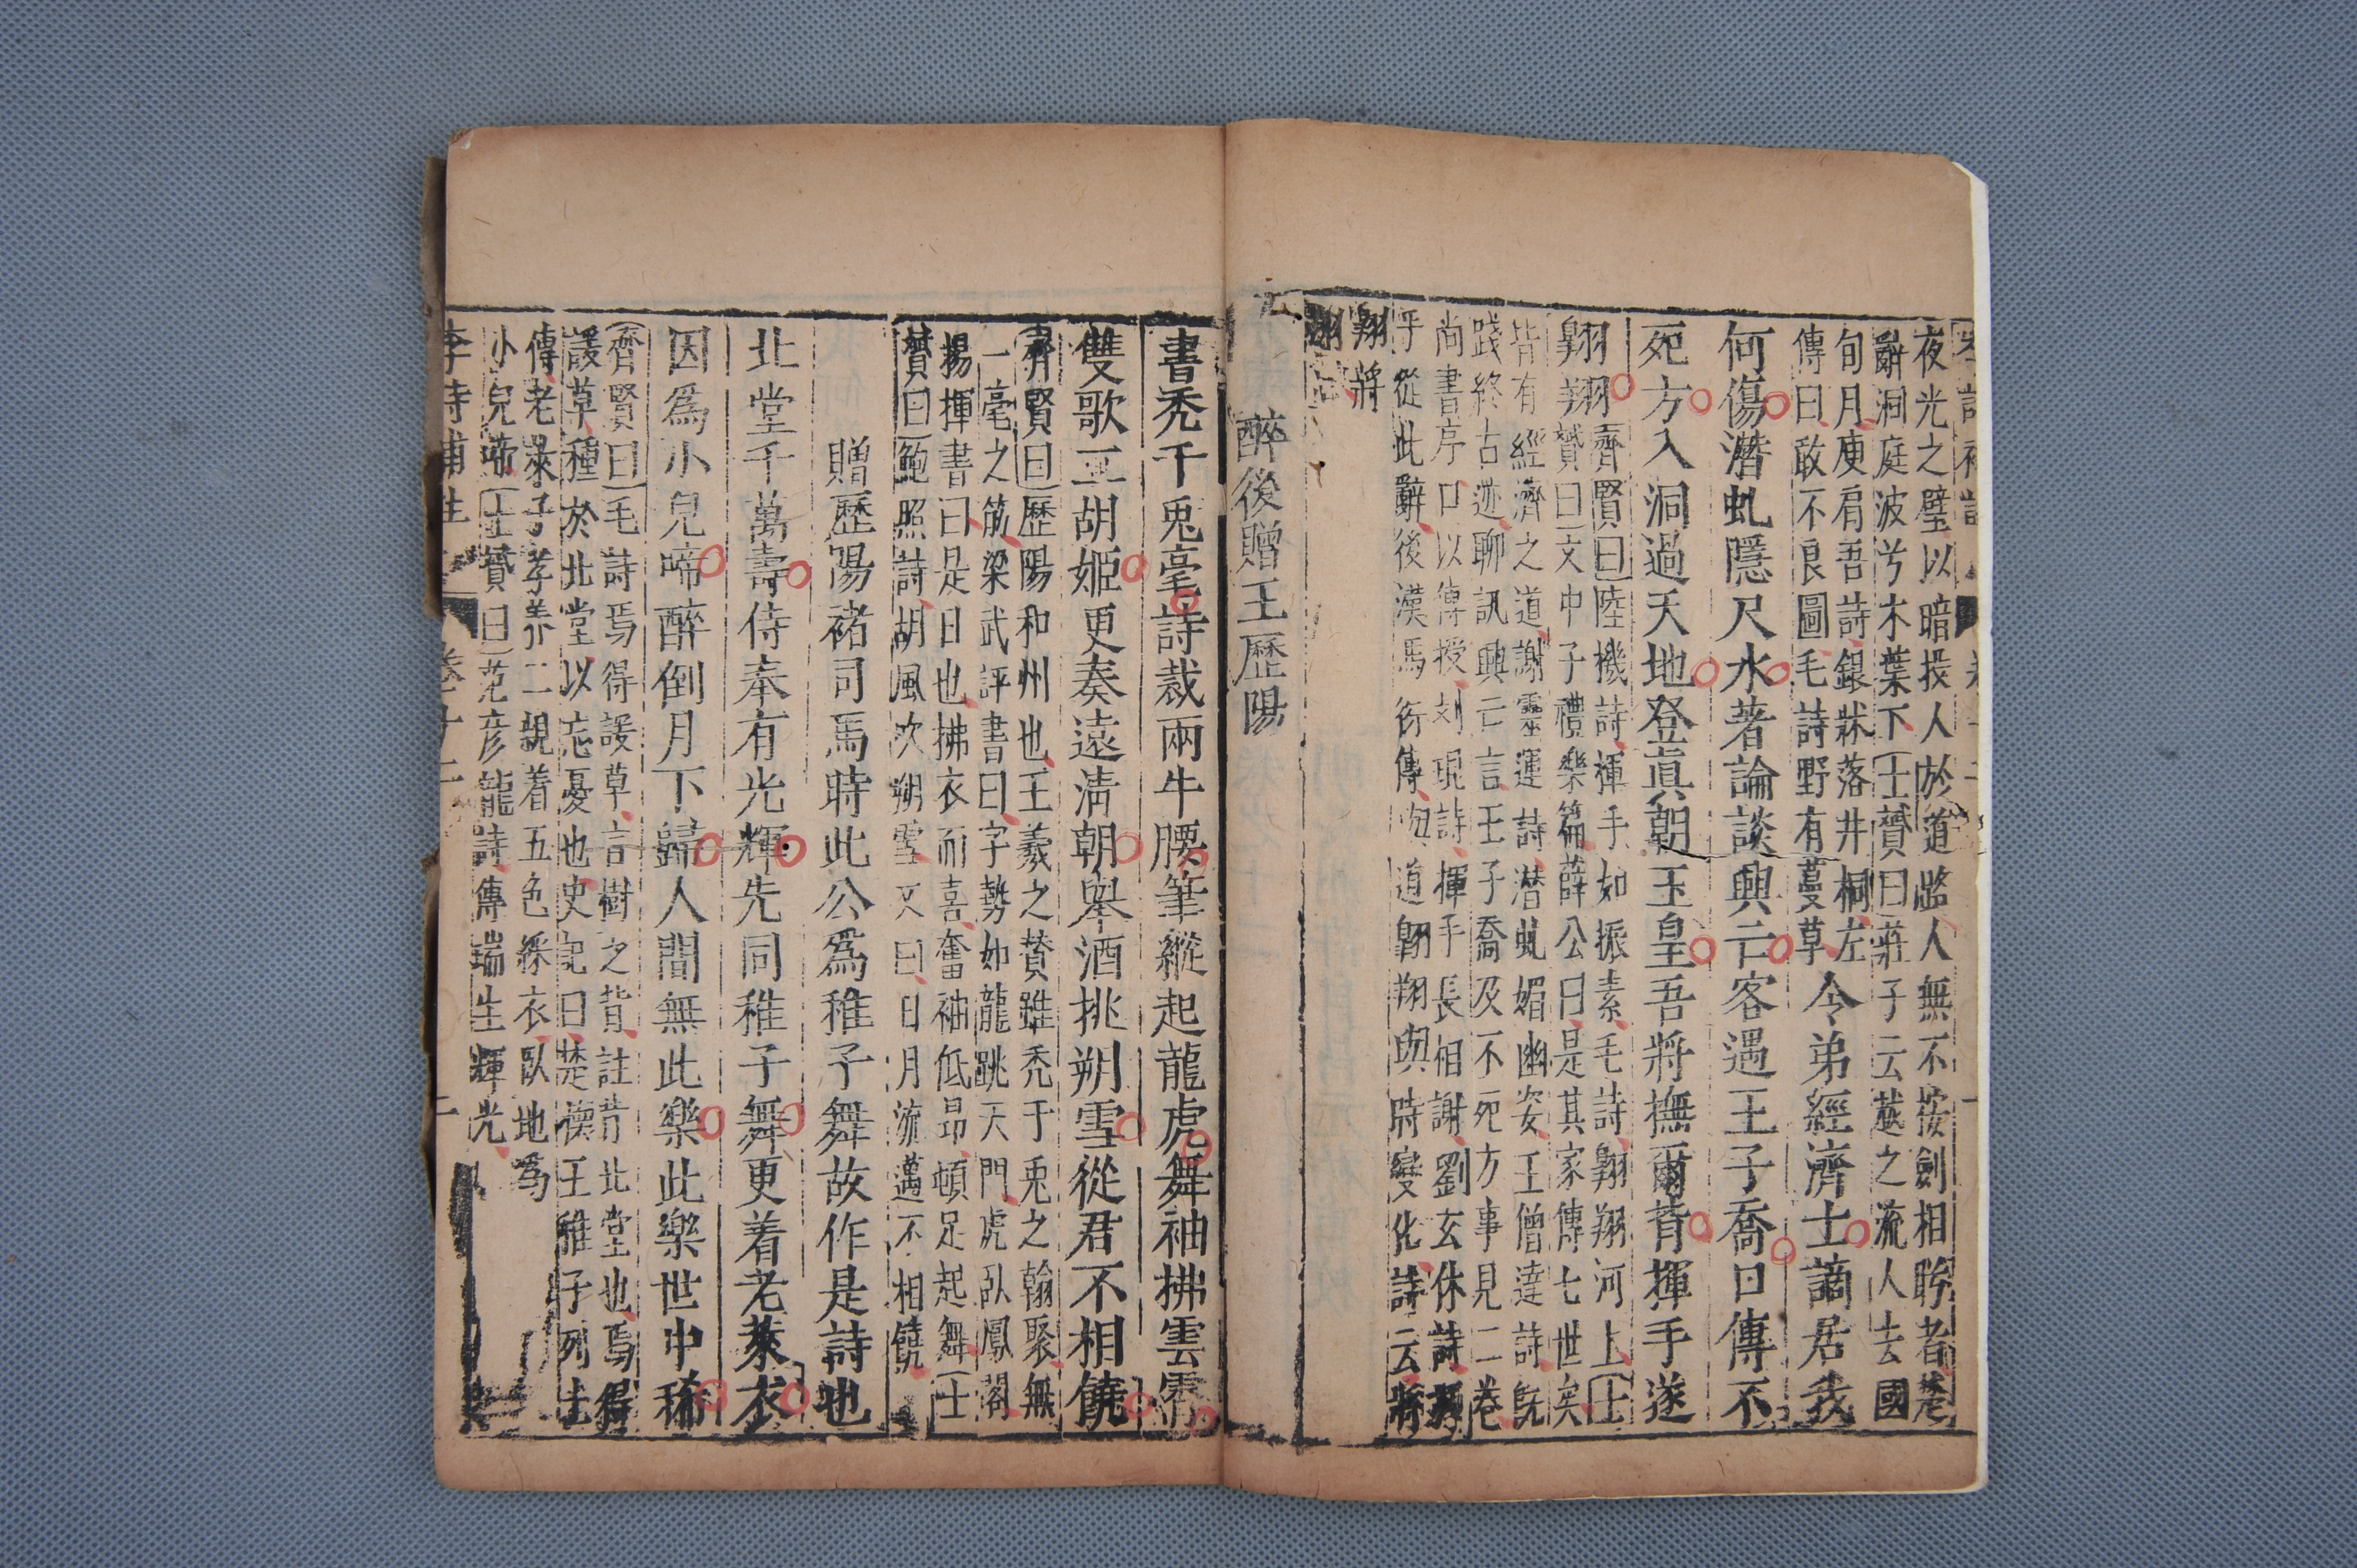 夜光之璧以暗投人於道路人無不按劍相眄者楚
辭洞庭波兮木葉下士贇曰莊子云越之流人去國
旬月庾肩吾詩銀牀落井桐左
傳曰敢不良圖毛詩野有蔓草
令弟經濟士謫居我
何傷潛虬隱尺水著論談興亡客遇王子喬口傳不
死方入洞過天地登眞朝玉皇吾將撫爾背揮手遂
翱翔
齊賢曰陸機詩揮手如振素毛詩翱翔河上士
贇曰文中子禮樂篇薛公曰是其家傳七世矣
皆有經濟之道謝靈運詩潛虬媚幽姿王僧達詩旣
踐終古迹聊訊興亡言王子喬及不死方事見二卷
尚書序口以傳授刘琨詩揮手長相謝劉玄休詩
乎從此辭後漢馮衍傳與道翱翔與時變化詩云將
翱將
翔
醉後贈王歷陽
書禿千兎毫詩裁兩牛腰筆縱起龍虎舞袖拂雲霄
雙歌二胡姬更奏遠清朝舉酒挑朔雪從君不相饒
齊賢曰歷陽和州也王羲之賛雖禿千兎之翰聚無
一毫之筋梁武評書曰字勢如龍跳天門虎臥鳳閣
楊揮書曰是日也拂衣而喜奮袖低昂頓足起舞士
贇曰鮑照詩胡風吹朔雪又曰日月流邁不相饒
贈歷陽褚司馬時此公爲稚子舞故作是詩也
北堂千萬壽侍奉有光輝先同稚子舞更着老萊衣
因爲小兒啼醉倒月下歸人間無此樂此樂世中稀
齊賢曰毛詩焉得諼草言樹之背註背北堂也焉得
諼草種於北堂以忘憂也史記曰楚懷王稚子列士
傳老萊子孝養二親着五色綵衣臥地爲
小兒啼士贇曰范彦龍詩傳瑞生輝光
李詩補註
卷十二